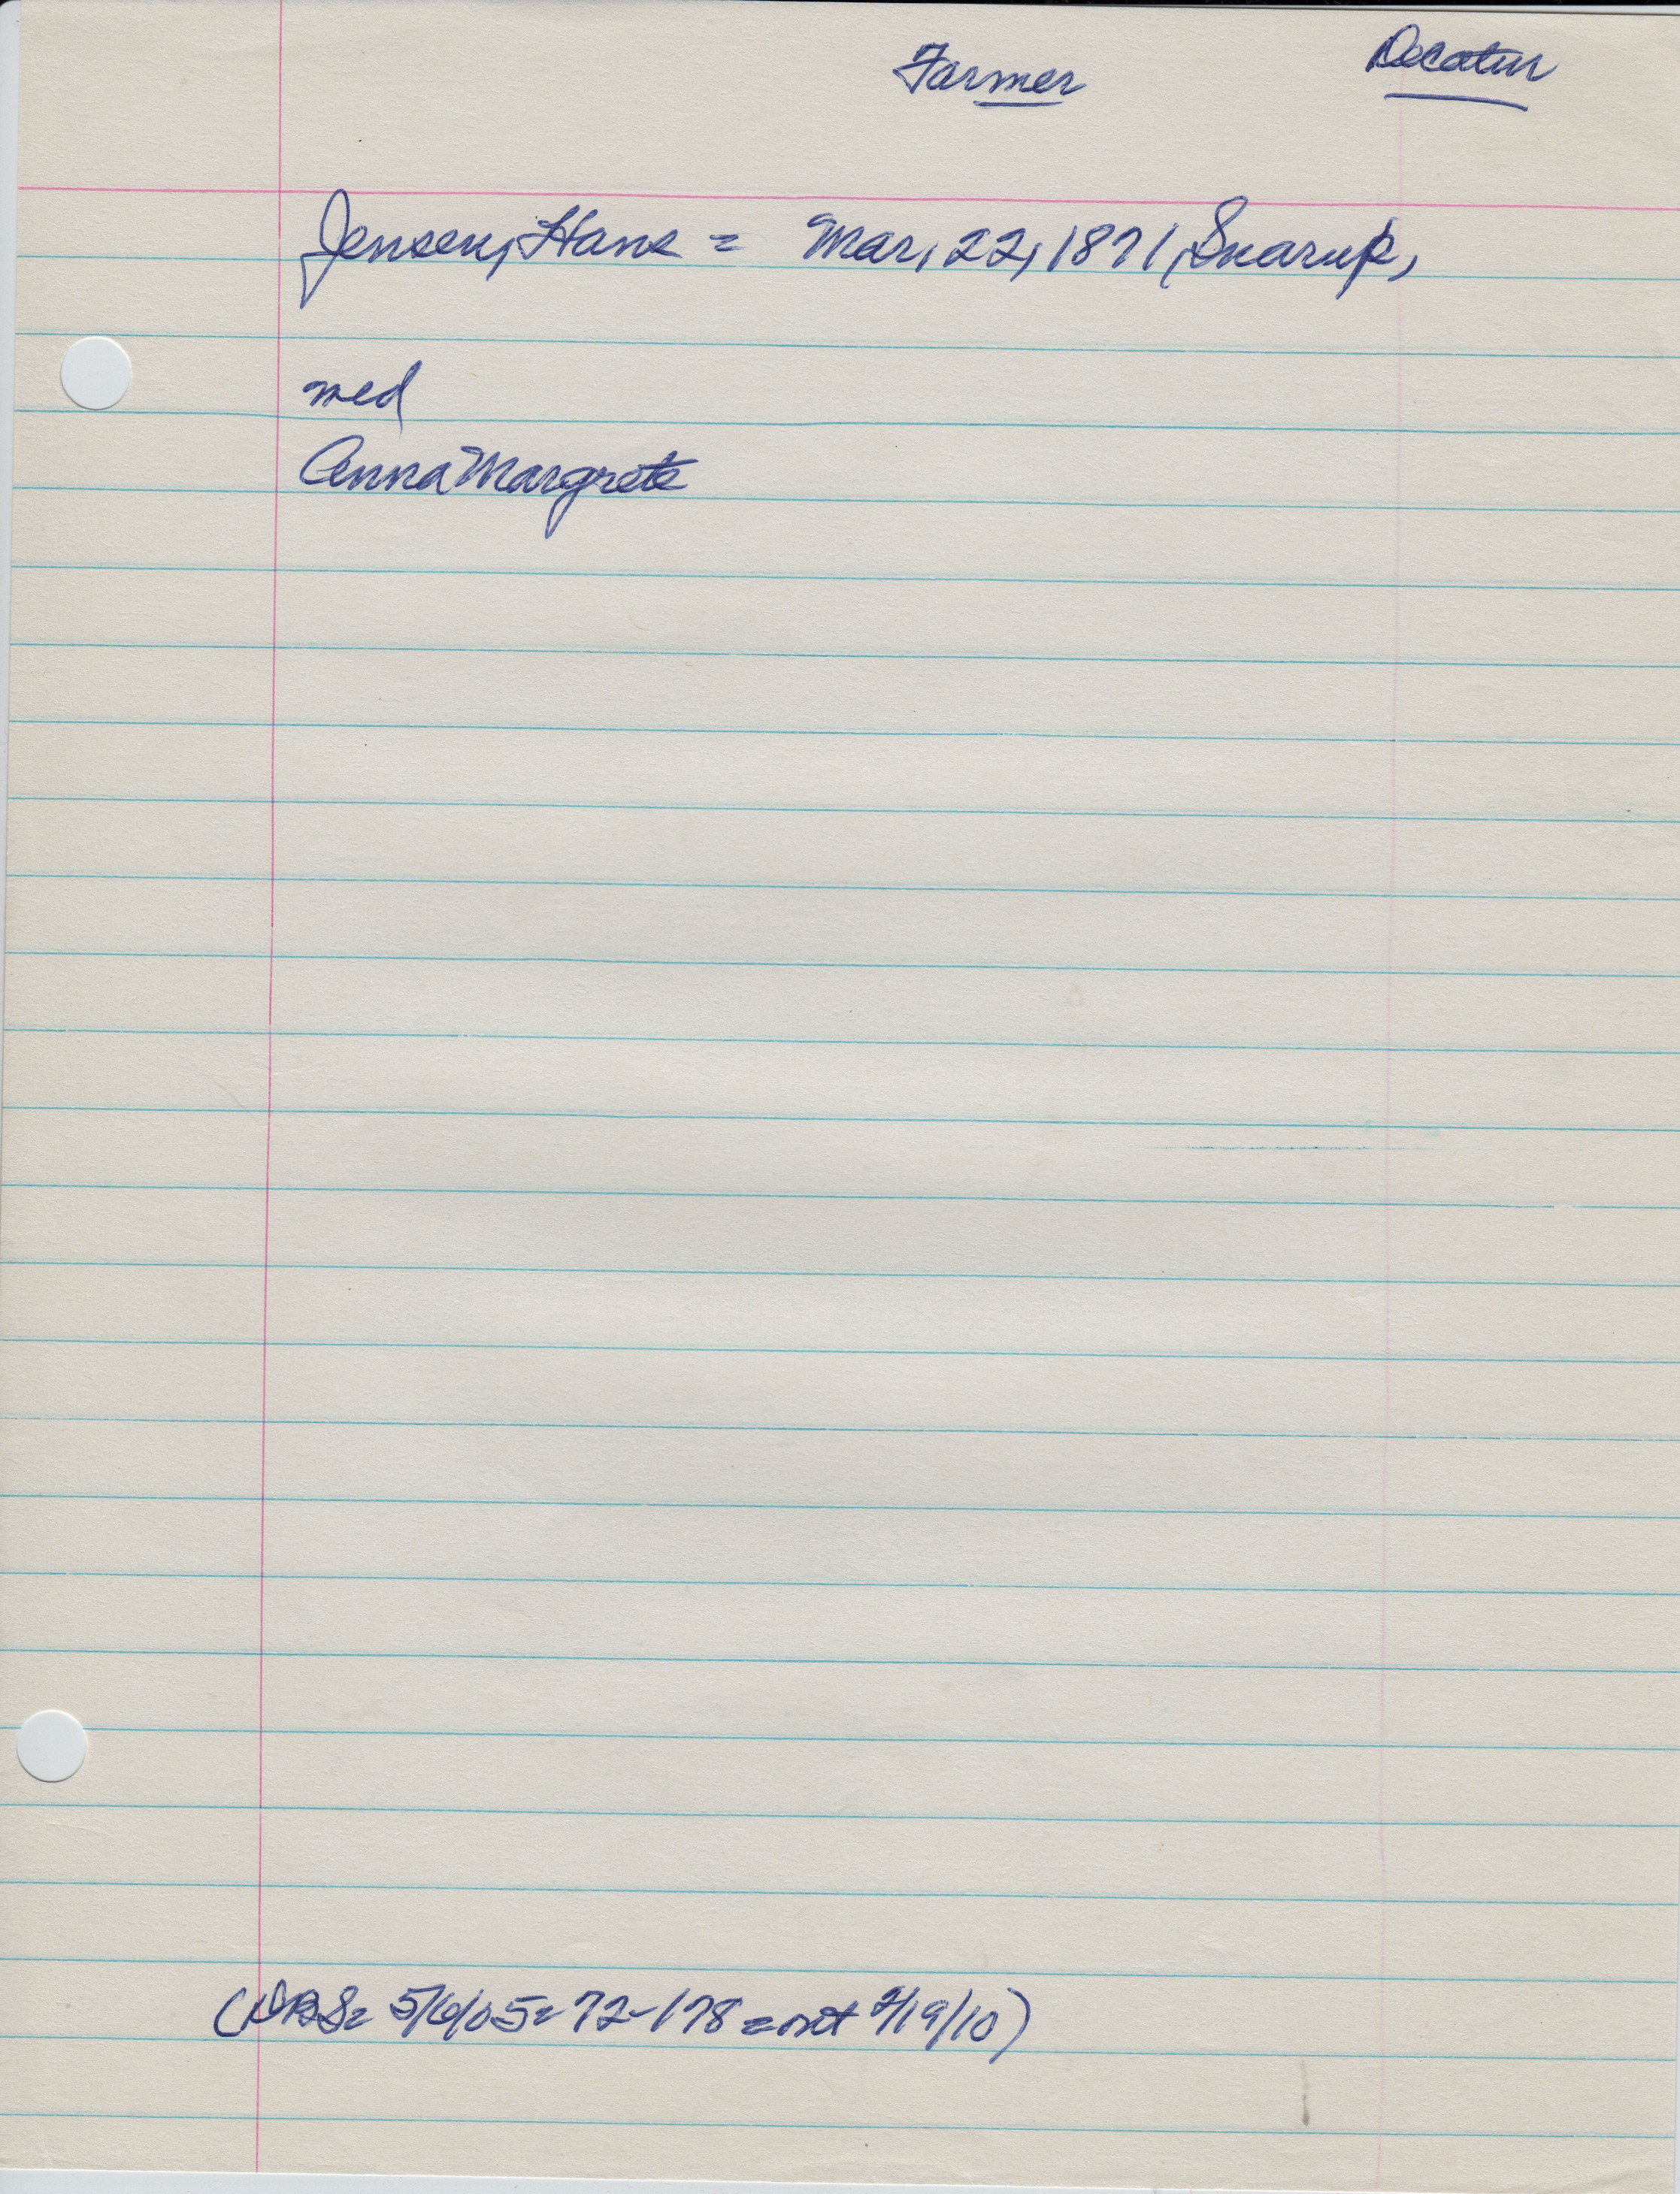 Farmer Decatur
Jensen, Hans = Mar, 22, 1871, Snarup,
med
Anna Margrete
(DBS= 5/6/05= 72-178 = nat 2/19/10)